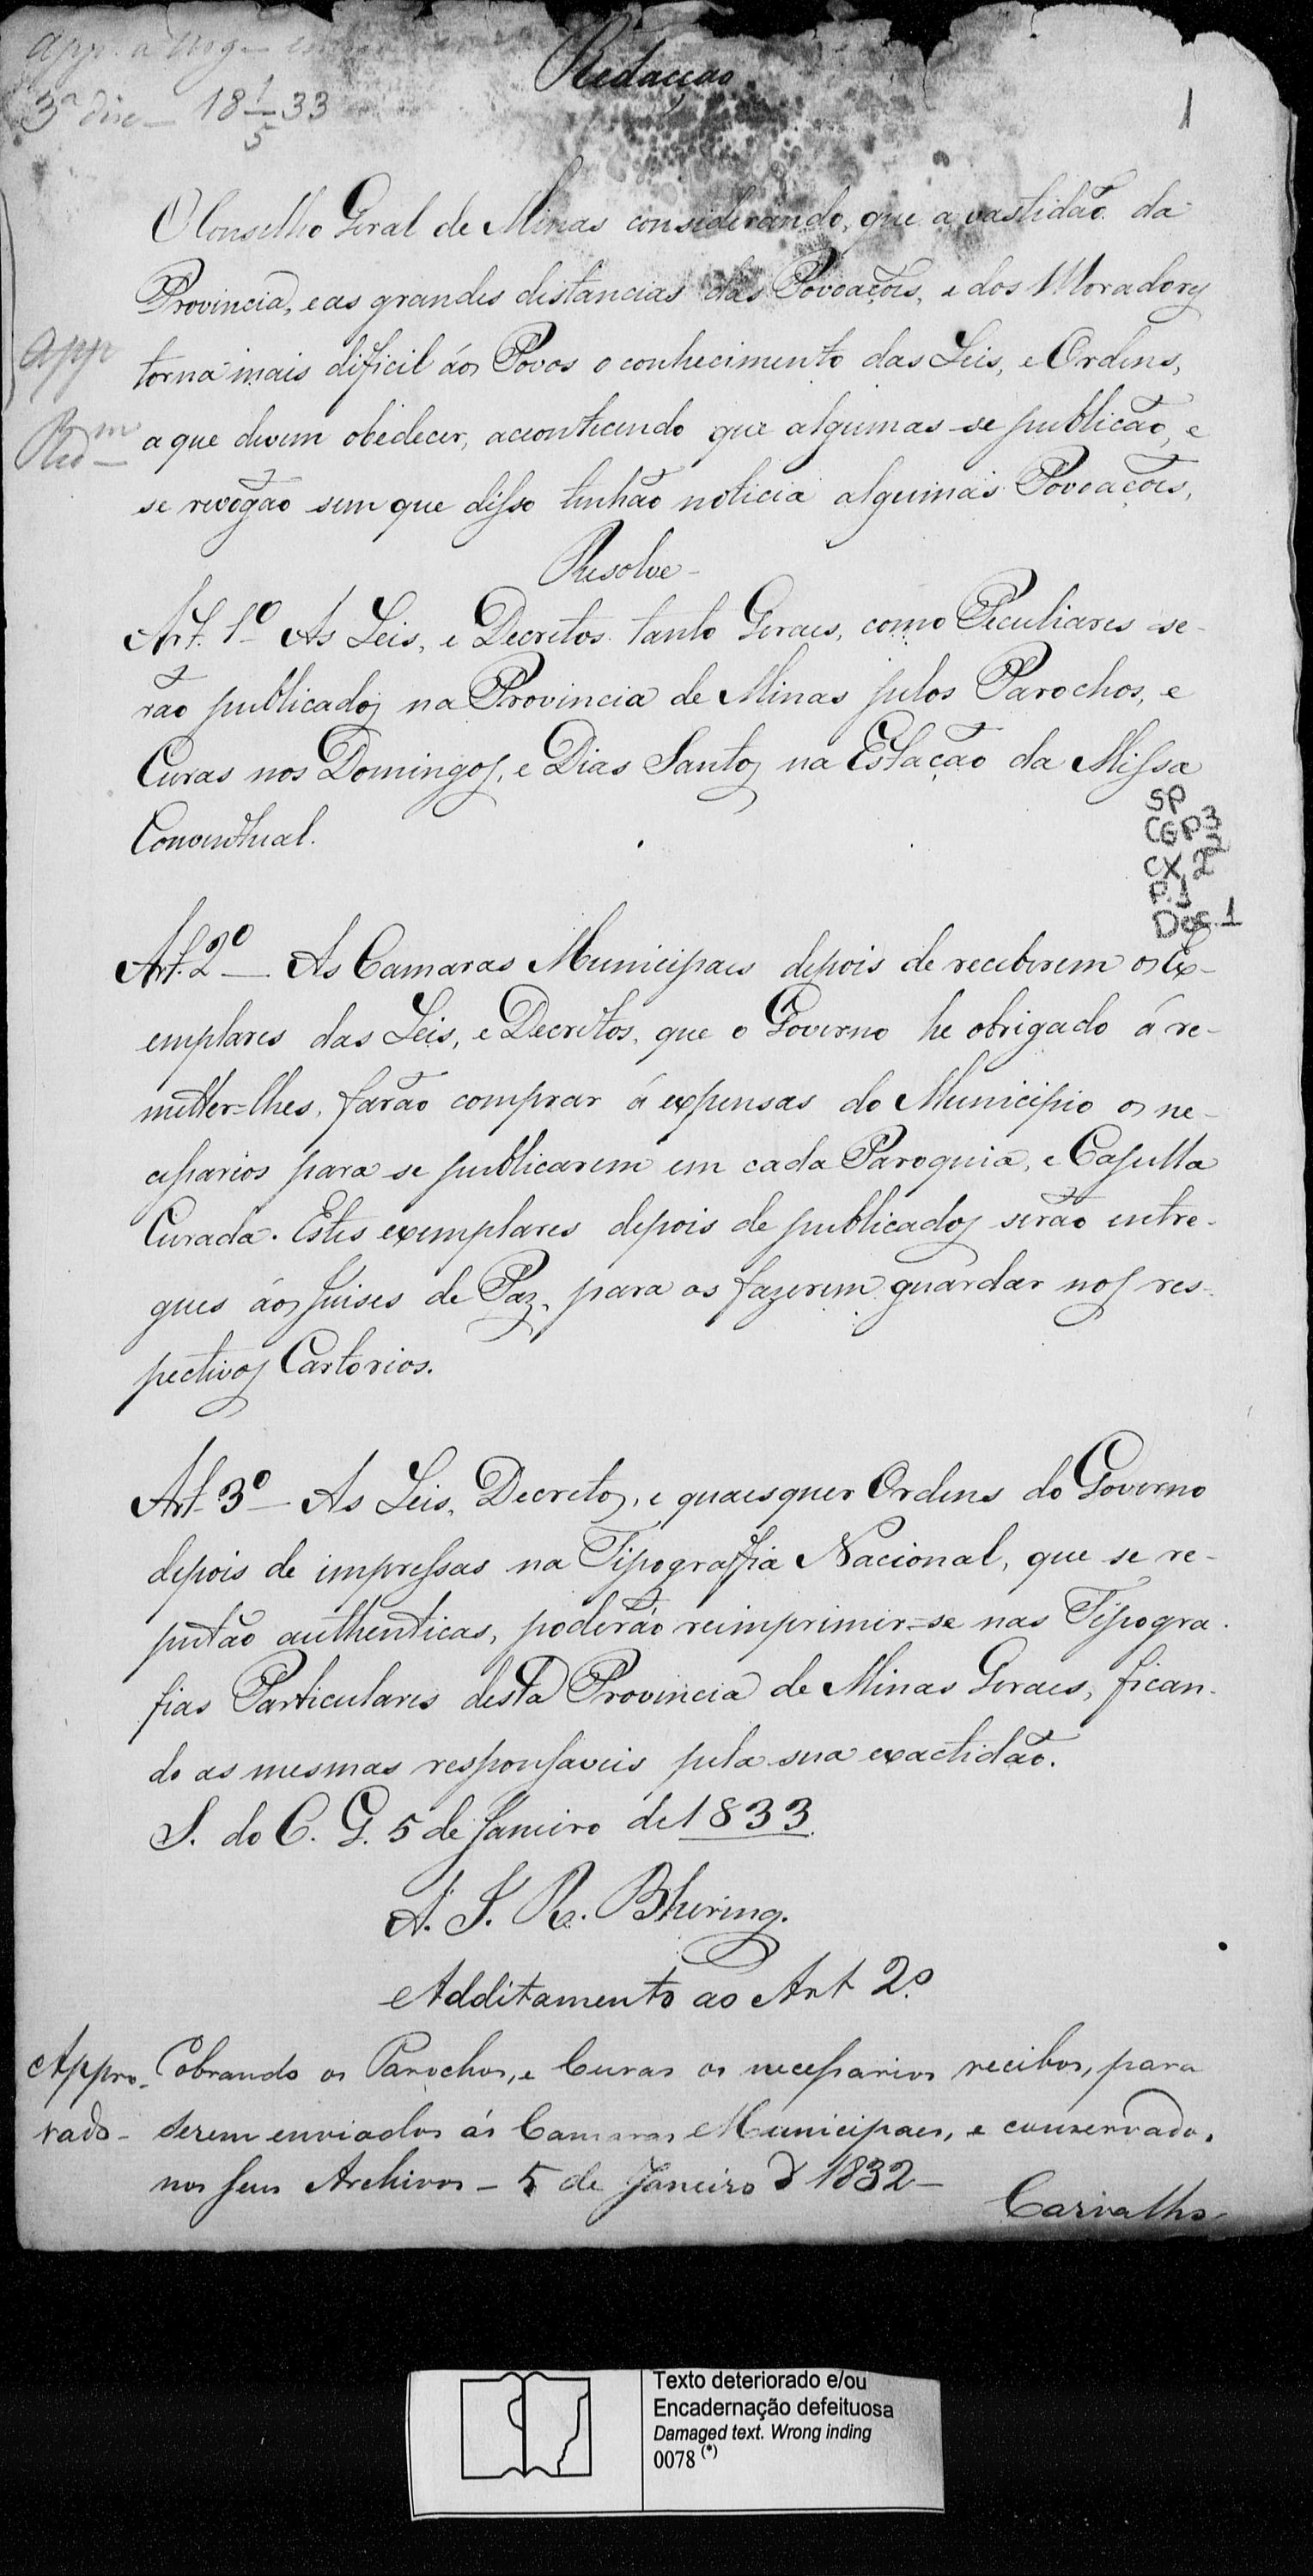 Redacção
App.
3ª disc — 18 1/5 33
1
O Conselho Geral de Minas considerando, que a vastidão da
Provincia, e as grandes distancias das Povoações, e dos Moradores
torna mais dificil áos Povos o conhecimento das Leis, e Ordens,
a que devem obedecer, acontecendo que algumas se publicão, e
se revogão sem que disso tenhão noticia algumas Povoações,
App
Red—m
Resolve—
Art. 1º As Leis, e Decretos tanto Geraes, como Peculiares se-
rão publicados na Provincia de Minas pelos Parochos, e
Curas nos Domingos, e Dias Santos na Estação da Missa
Conventual.
SP
CGP3
CX. 2
P. 1
Doc. 1
Art. 2º — As Camaras Municipaes depois de receberem os Ex-
emplares das Leis, e Decretos, que o Governo he obrigado á re-
metter=lhes, farão comprar á expensas do Municipio os ne-
cessarios para se publicarem em cada Paroquia, e Capella
Curada. Estes exemplares depois de publicados serão entre-
gues áos Juises de Paz, para os fazerem guardar nos res-
pectivos Cartorios.
Art. 3º — As Leis, Decretos, e quaesquer Ordens do Governo
depois de impressas na Tipografia Nacional, que se re-
putão authenticas, poderáõ reimprimir=se nas Tipogra-
fias Particulares desta Provincia de Minas Geraes, fican-
do as mesmas responsaveis pela sua exactidão.
S. do C. G. 5 de Janeiro de 1833.
A. J. R. Bhering.
Additamento ao Art 2º
Appro- Cobrando os Parochos, e Curas os necessarios recibos, para
vado— serem enviados ás Camaras Municipaes, e conservados
nos seus Archivos — 5 de Janeiro d 1832 —
Carvalho
Texto deteriorado e/ou
Encadernação defeituosa
Damaged text. Wrong inding
0078 (*)